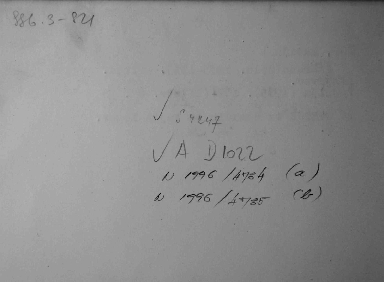 886.3-821
√
S 4247
√ A D1022
N 1996/4734 (a)
N 1996/4735 (b)